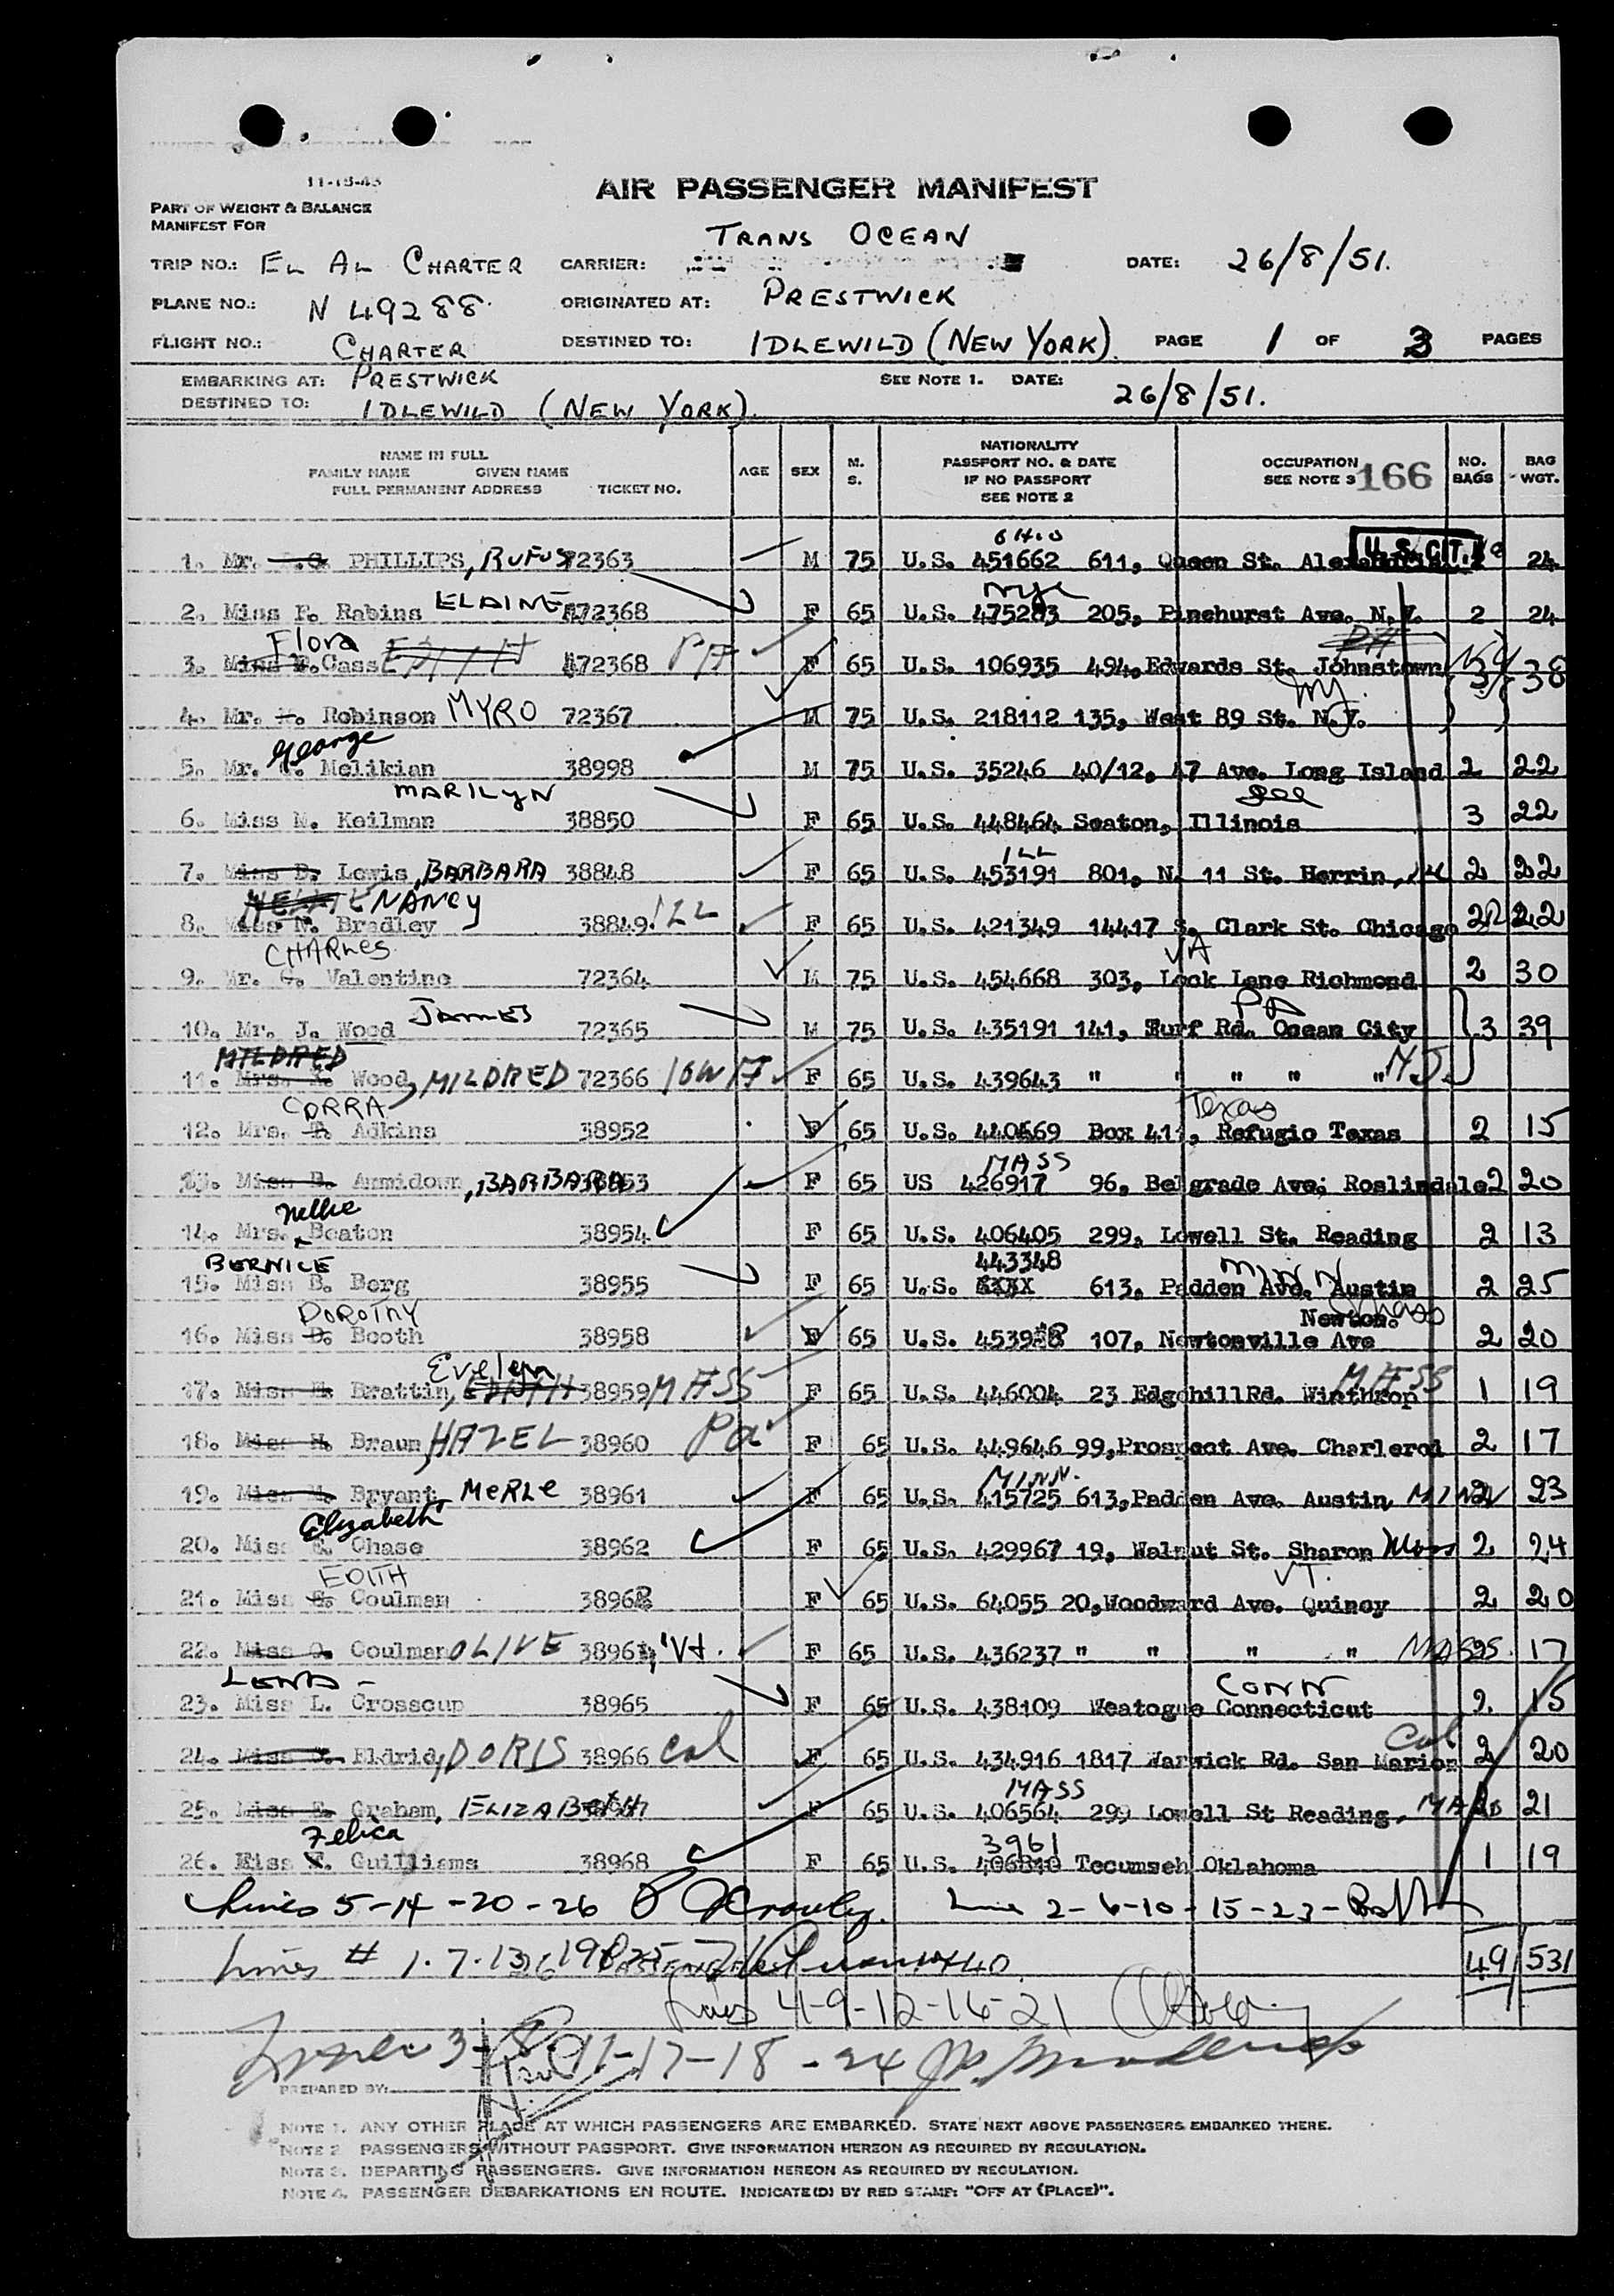 11-15-45
AIR PASSENGER MANIFEST
PART OF WEIGHT & BALANCE
MANIFEST FOR
TRANS OCEAN
TRIP NO.: EL AL CHARTER CARRIER: DATE: 26/8/51.
PLANE NO.: N 49288 ORIGINATED AT: PRESTWICK
FLIGHT NO.: CHARTER DESTINED TO: IDLEWILD (NEW YORK) PAGE 1 OF 3 PAGES
EMBARKING AT: PRESTWICK SEE NOTE 1. DATE: 26/8/51.
DESTINED TO: IDLEWILD (NEW YORK).
NAME IN FULL
FAMILY NAME GIVEN NAME
FULL PERMANENT ADDRESS TICKET NO. AGE SEX M. S. NATIONALITY PASSPORT NO. & DATE IF NO PASSPORT SEE NOTE 2 OCCUPATION SEE NOTE 3 166 NO. BAGS BAG WGT.
OHIO U.S. CIT.
1. Mr. PHILLIPS, RUFUS 72363 M 75 U.S. 451662 611, Queen St. 24
NYC
2. Miss Rabins ELAINE 72368 F 65 U.S. 475283 205, Pinehurst Ave. N.Y. 2 24
Flora
3. Miss Cass EDITH 72368 PA F 65 U.S. 106935 494, Edwards St. Johnstown 38
NY.
4. Mr. Robinson MYRO 72367 M 75 U.S. 218112 135, West 89 St. N.Y.
George
5. Mr. G. Melikian 38998 M 75 U.S. 35246 40/12, 47 Ave. Long Island 2 22
MARILYN Ill
6. Miss M. Keilman 38850 F 65 U.S. 448464 Seaton, Illinois 3 22
ILL
7. Miss B. Lewis, BARBARA 38848 F 65 U.S. 453191 801, N. 11 St. Herrin, Ill 2 22
NANCY
8. Miss N. Bradley 38849 ILL F 65 U.S. 421349 14417 S. Clark St. Chicago 2 22
CHARLES VA
9. Mr. C. Valentine 72364 M 75 U.S. 454668 303, Lock Lane Richmond 2 30
JAMES PA
10. Mr. J. Wood 72365 M 75 U.S. 435191 141, Surf Rd. Ocean City 3 39
MILDRED
11. Mrs. Wood, MILDRED 72366 IOWA F 65 U.S. 439643 " " " " " N.J.
CORRA Texas
12. Mrs. Adkins 38952 F 65 U.S. 440669 Box 411, Refugio Texas 2 15
MASS
13. Miss B. Ammidown, BARBARA 38953 F 65 US 426917 96, Belgrade Ave; Roslindale 2 20
Nellie
14. Mrs. Beaton 38954 F 65 U.S. 406405 299, Lowell St. Reading 2 13
BERNICE 443348 MINN
15. Miss B. Berg 38955 F 65 U.S. XXXX 613, Padden Ave. Austin 2 25
DOROTHY Newton. Mass
16. Miss D. Booth 38958 F 65 U.S. 107, Newtonville Ave 2 20
Evelyn
17. Miss E. Brattin, EDITH 38959 MASS F 65 U.S. 446004 23 Edgehill Rd. Winthrop MASS 1 19
18. Miss H. Braum, HAZEL 38960 Pa F 65 U.S. 449646 99, Prospect Ave. Charleroi 2 17
MINN.
19. Miss M. Bryant, MERLE 38961 F 65 U.S. 415725 613, Padden Ave. Austin, MINN 2 23
Elizabeth
20. Miss E. Chase 38962 F 65 U.S. 429967 19, Walnut St. Sharon Mass 2 24
EDITH VT.
21. Miss E. Coulman 38963 F 65 U.S. 64055 20, Woodward Ave. Quincy 2 20
22. Miss O. Coulman OLIVE 38964, Vt. F 65 U.S. 436237 " " " " MASS. 17
LENA CONN
23. Miss L. Crosscup 38965 F 65 U.S. 438109 Weatogue Connecticut 2. 15
24. Miss Eldrid, DORIS 38966 Cal F 65 U.S. 434916 1817 Warwick Rd. San Marion Cal 2 20
MASS
25. Miss E. Graham, ELIZABETH F 65 U.S. 406564 299 Lowell St Reading, MASS 21
Felica 3961
26. Miss F. Guilliams 38968 F 65 U.S. 406840 Tecumseh Oklahoma 1 19
Lines 5-14-20-26 Line 2-6-10-15-23-
Lines # 1.7.13 19 25 49 531
Lines 4-9-12-16-21
Lines 3-8-11-17-18-24
PREPARED BY:
NOTE 1. ANY OTHER PLACE AT WHICH PASSENGERS ARE EMBARKED. STATE NEXT ABOVE PASSENGERS EMBARKED THERE.
NOTE 2 PASSENGERS WITHOUT PASSPORT. GIVE INFORMATION HEREON AS REQUIRED BY REGULATION.
NOTE 3. DEPARTING PASSENGERS. GIVE INFORMATION HEREON AS REQUIRED BY REGULATION.
NOTE 4. PASSENGER DEBARKATIONS EN ROUTE. INDICATE (D) BY RED STAMP: "OFF AT (PLACE)".